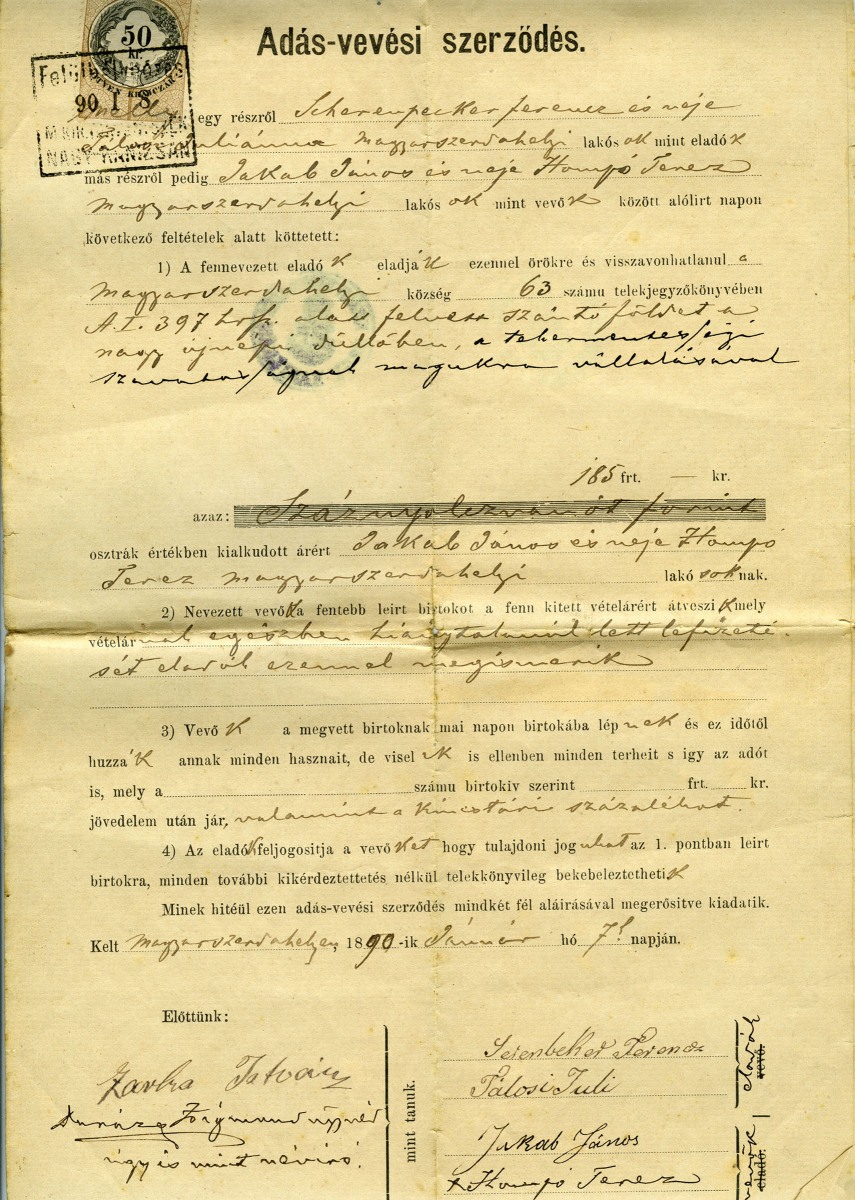 Adás-vevési szerződés.
50
kr.
90 I 8
NAGY-KANIZSÁN
mely egy részről Scherenpecker Ferencz és neje
Pálosi Juliánna Magyarszerdahelyi lakós ok mint eladó k
más részről pedig Jakab János és neje Hompó Terez
Magyarszerdahelyi lakós ok mint vevő k között alólirt napon
következő feltételek alatt köttetett:
1) A fennevezett eladó k eladják ezennel örökre és visszavonhatlanul a
Magyarszerdahelyi község 63 számu telekjegyzőkönyvében
A.I. 397 hrsz. alatt felvett szántóföldet a
nagy újnépi düllőben, a tehermentességi
szavatosságnak magukra vállalásával
185 frt. — kr.
azaz: Száznyolczvanöt forint
osztrák értékben kialkudott árért Jakab János és neje Hompó
Terez magyarszerdahelyi lakó soknak.
2) Nevezett vevők a fentebb leirt birtokot a fenn kitett vételárért átveszik mely
vételárnak egészben hiánytalanúl lett lefizeté-
sét eladók ezennel megismerik
3) Vevő k a megvett birtoknak mai napon birtokába lépnek és ez időtől
huzzák annak minden hasznait, de viselik is ellenben minden terheit s igy az adót
is, mely a számu birtokiv szerint frt. kr.
jövedelem után jár, valamint a kincstári százalékot.
4) Az eladók feljogositja a vevőket hogy tulajdoni jogukat az 1. pontban leirt
birtokra, minden további kikérdeztettetés nélkül telekkönyvileg bekebeleztethetik
Minek hitéül ezen adás-vevési szerződés mindkét fél aláirásával megerősitve kiadatik.
Kelt Magyarszerdahelyen, 1890-ik Január hó 7. napján.
Előttünk:
Zavka István
Zsigmond
úgy is mint névíró.
mint tanuk.
Serenbeker Ferencz
Pálosi Juli
eladók
vevő.
Jakab János
x Hompó Terez
vevők
eladó.